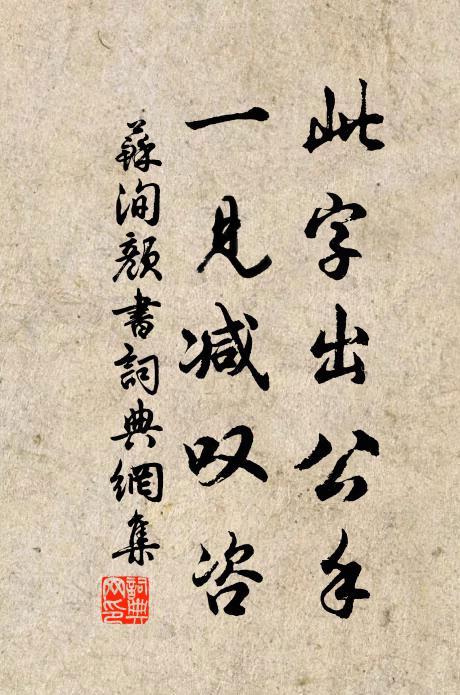 此字出公手
一見减叹咨
蘇洵顔書詞典網集
詞典
网印